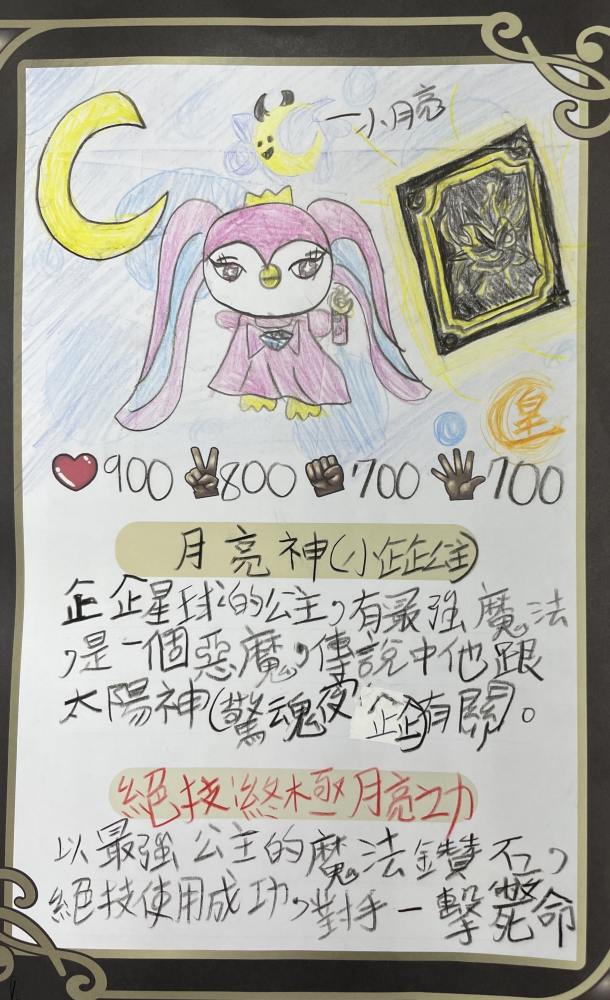 小月亮
皇
900 800 700 700
月亮神(小企企公主)
企企星球的公主,有最強魔法
,是一個惡魔,傳說中他跟
太陽神(驚魂受企企有關)。
絕技:終極月亮功
以最強公主的魔法鑽石,
絕技使用成功,對手一擊斃命